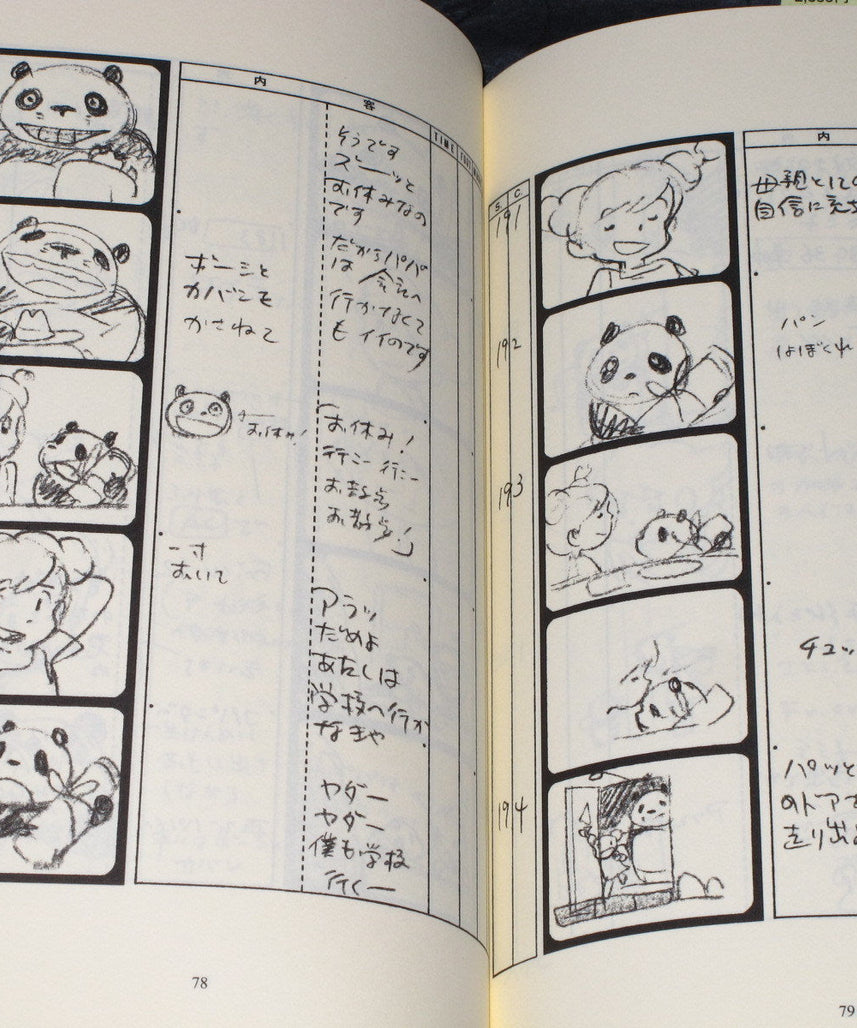 内
容
TIME
ボーシと
カバンを
かさねて
お休み!
一寸
おいて
そうです
ズーッと
お休みなの
です
だからパパ
は 会社へ
行かなくて
も イイのです
「お休み!
行こー 行こー
お散歩
お散歩!」
アラッ
だめよ
あたしは
学校へ行か
なきゃ
ヤダー
ヤダー
僕も学校
行くー
78
S.
C.
内
191
母親としての
自信に
192
パン
193
194
チュッ
パッと
のドアで
走り出
79